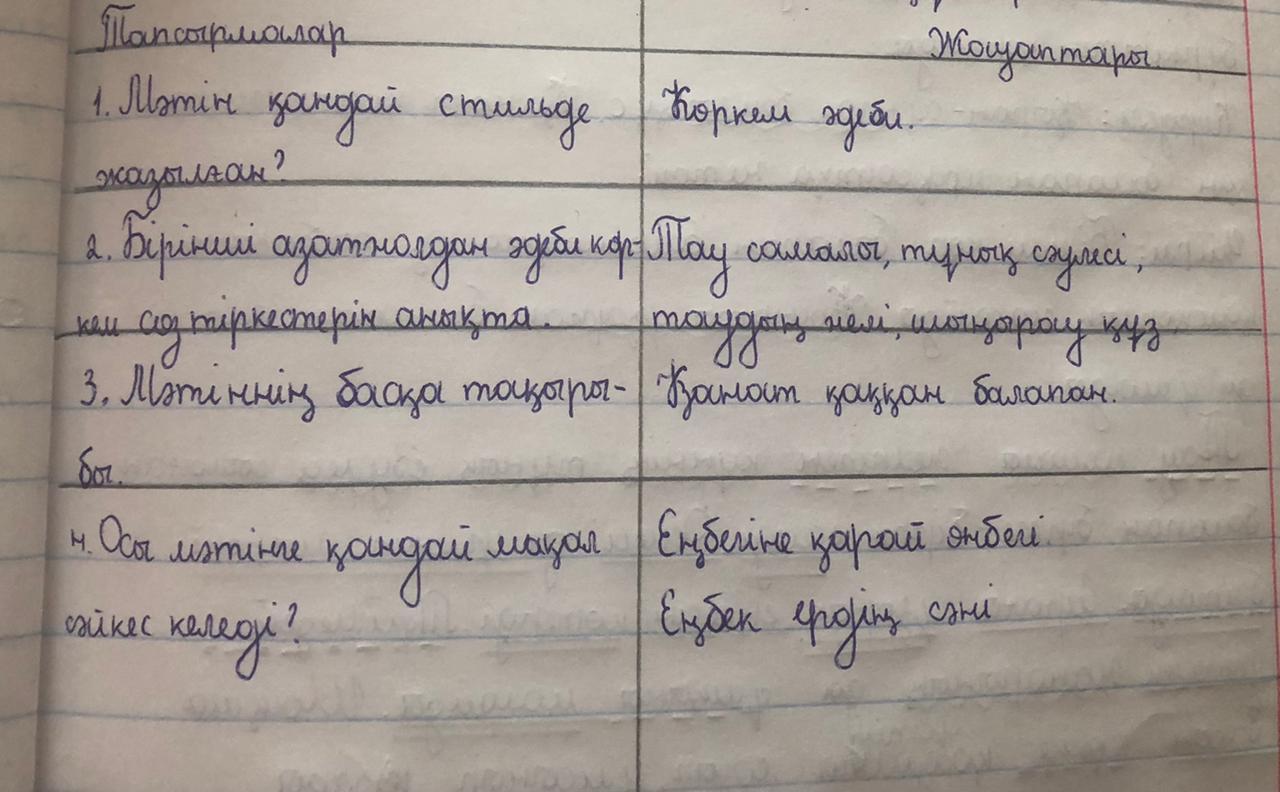 Тапсырмалар
Жауаптары
1. Мәтін қандай стильде
жазылған?
Көркем әдеби.
2. Бірінші азатжолдан әдеби көр-
кем сөз тіркестерін анықта.
Тау самалы, тұнық сәулесі,
таудың желі, шыңырау құз
3. Мәтіннің басқа тақыры-
бы.
Қанат қаққан балапан.
4. Осы мәтінге қандай мақал
сәйкес келеді?
Еңбегіне қарай өнбегі
Еңбек ердің сәні